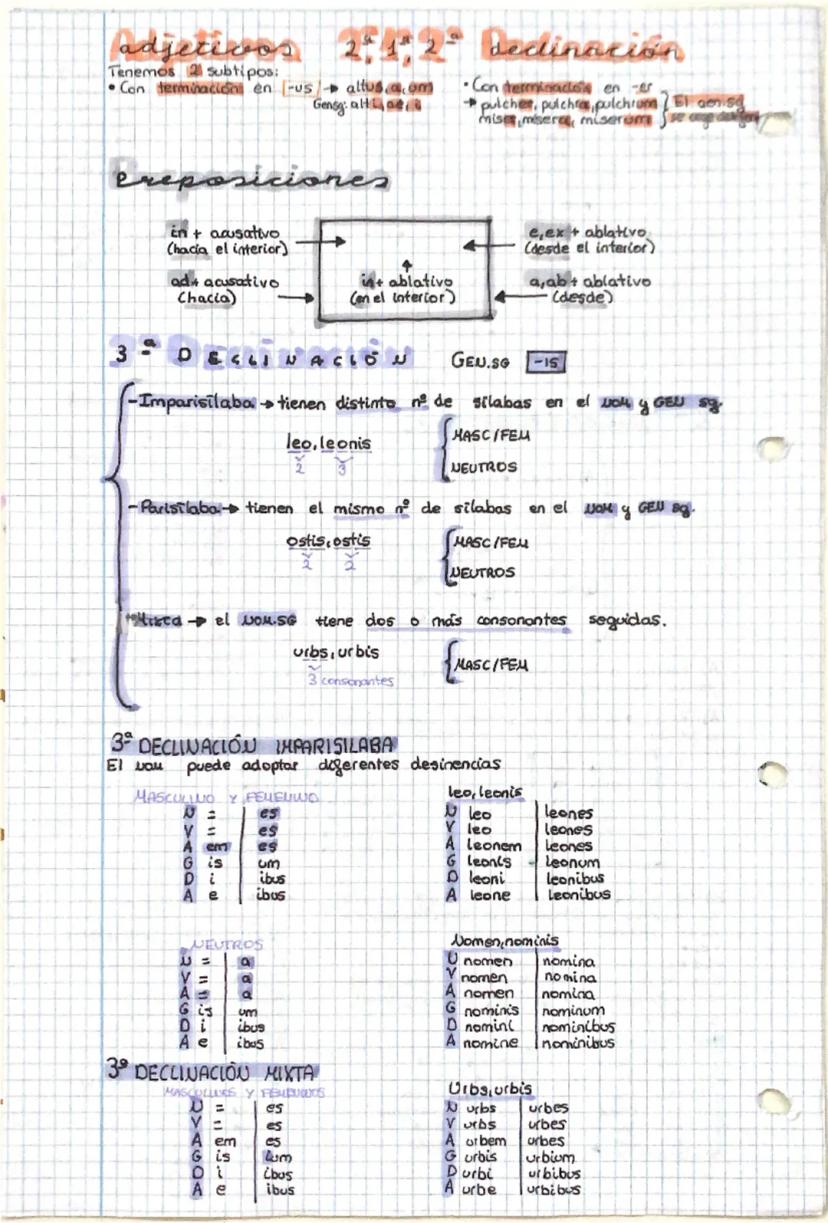 adjetivos 2ª,1ª,2ª Declinación
Tenemos 2 subtipos:
• Con terminación en -us → altus,a,um
Gensg: alti,ae,i
• Con terminación en -er
→ pulcher, pulchra, pulchrum
miser, misera, miserum
El gen.sg
Preposiciones
in + acusativo
(hacia el interior)
ad+ acusativo
(hacia)
in+ ablativo
(en el interior)
e,ex + ablativo
(desde el interior)
a,ab + ablativo
(desde)
3ª DECLINACIÓN GEN.SG -IS
-Imparisílaba → tienen distinto nº de sílabas en el NOM y GEN sg.
leo, leonis
2 3
MASC/FEM
NEUTROS
-Parisílaba → tienen el mismo nº de sílabas en el NOM y GEN sg.
ostis, ostis
2 2
MASC/FEM
NEUTROS
Mixta → el NOM.SG tiene dos o más consonantes seguidas.
urbs, urbis
3 consonantes
MASC/FEM
3ª DECLINACIÓN IMPARISILABA
El NOM puede adoptar diferentes desinencias
MASCULINO Y FEMENINO
N = es
V = es
A em es
G is um
D i ibus
A e ibus
leo, leonis
N leo leones
V leo leones
A leonem leones
G leonis leonum
D leoni leonibus
A leone leonibus
NEUTROS
N = a
V = a
A = a
G is um
D i ibus
A e ibus
Nomen, nominis
N nomen nomina
V nomen nomina
A nomen nomina
G nominis nominum
D nomini nominibus
A nomine nominibus
3ª DECLINACIÓN MIXTA
MASCULINOS Y FEMENINOS
N = es
V = es
A em es
G is ium
D i ibus
A e ibus
Urbs, urbis
N urbs urbes
V urbs urbes
A urbem urbes
G urbis urbium
D urbi urbibus
A urbe urbibus